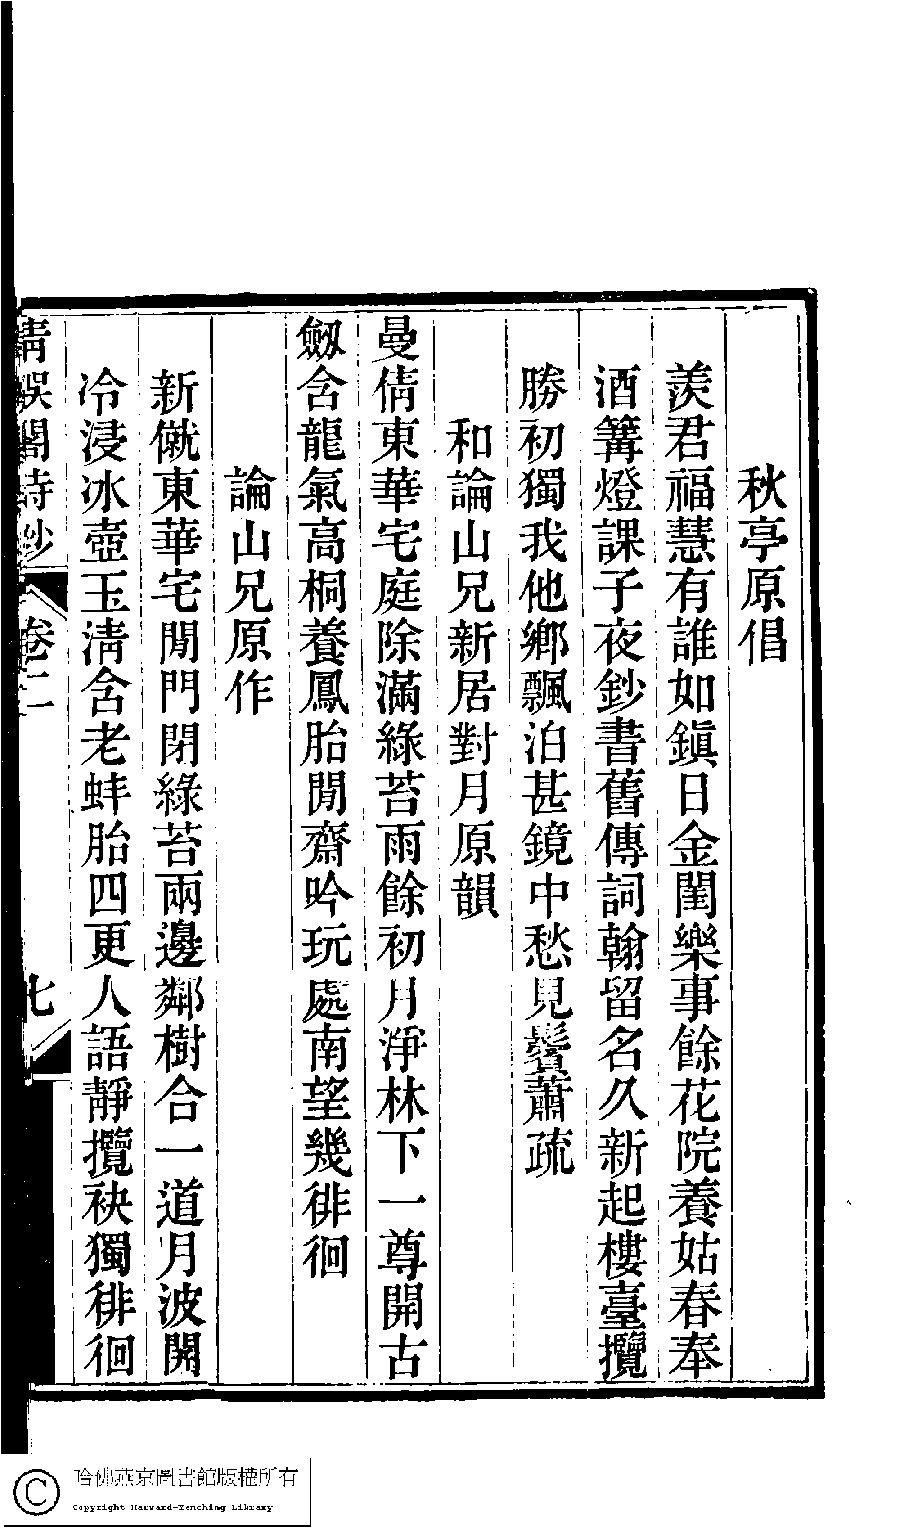 秋亭原倡
羡君福慧有誰如鎭日金閨樂事餘花院養姑春奉
酒篝燈課子夜鈔書舊傳詞翰留名久新起樓臺攬
勝初獨我他鄉飄泊甚鏡中愁見鬢蕭疏
和論山兄新居對月原韻
曼倩東華宅庭除滿綠苔雨餘初月淨林下一尊開古
劒含龍氣高桐養鳳胎閒齋吟玩處南望幾徘徊
論山兄原作
新僦東華宅閒門閉綠苔兩邊鄰樹合一道月波開
冷浸冰壺玉淸含老蚌胎四更人語靜攬袂獨徘徊
清娛閣詩鈔
卷二
七
哈佛燕京圖書館版權所有
Copyright Harvard-Yenching Library